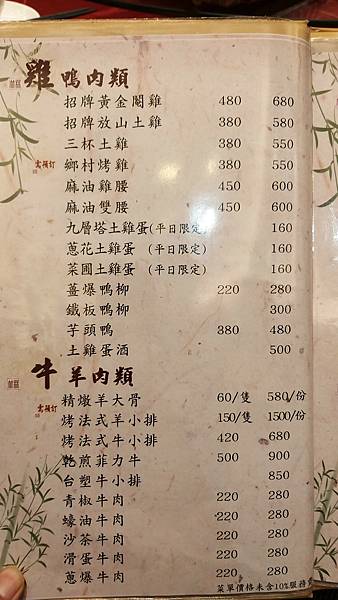 雞鴨肉類
招牌黃金閹雞 480 680
招牌放山土雞 380 580
三杯土雞 380 550
需預訂 鄉村烤雞 380 550
麻油雞腰 450 600
麻油雙腰 450 600
九層塔土雞蛋(平日限定) 160
蔥花土雞蛋 (平日限定) 160
菜圃土雞蛋 (平日限定) 160
薑爆鴨柳 220 280
鐵板鴨柳 300
芋頭鴨 380 480
土雞蛋酒 500
牛羊肉類
精燉羊大骨 60/隻 580/份
需預訂 烤法式羊小排 150/隻 1500/份
烤法式牛小排 420 680
乾煎菲力牛 500 900
台塑牛小排 850
青椒牛肉 220 280
蠔油牛肉 220 280
沙茶牛肉 220 280
滑蛋牛肉 220 280
蔥爆牛肉 220 280
菜單價格未含10%服務